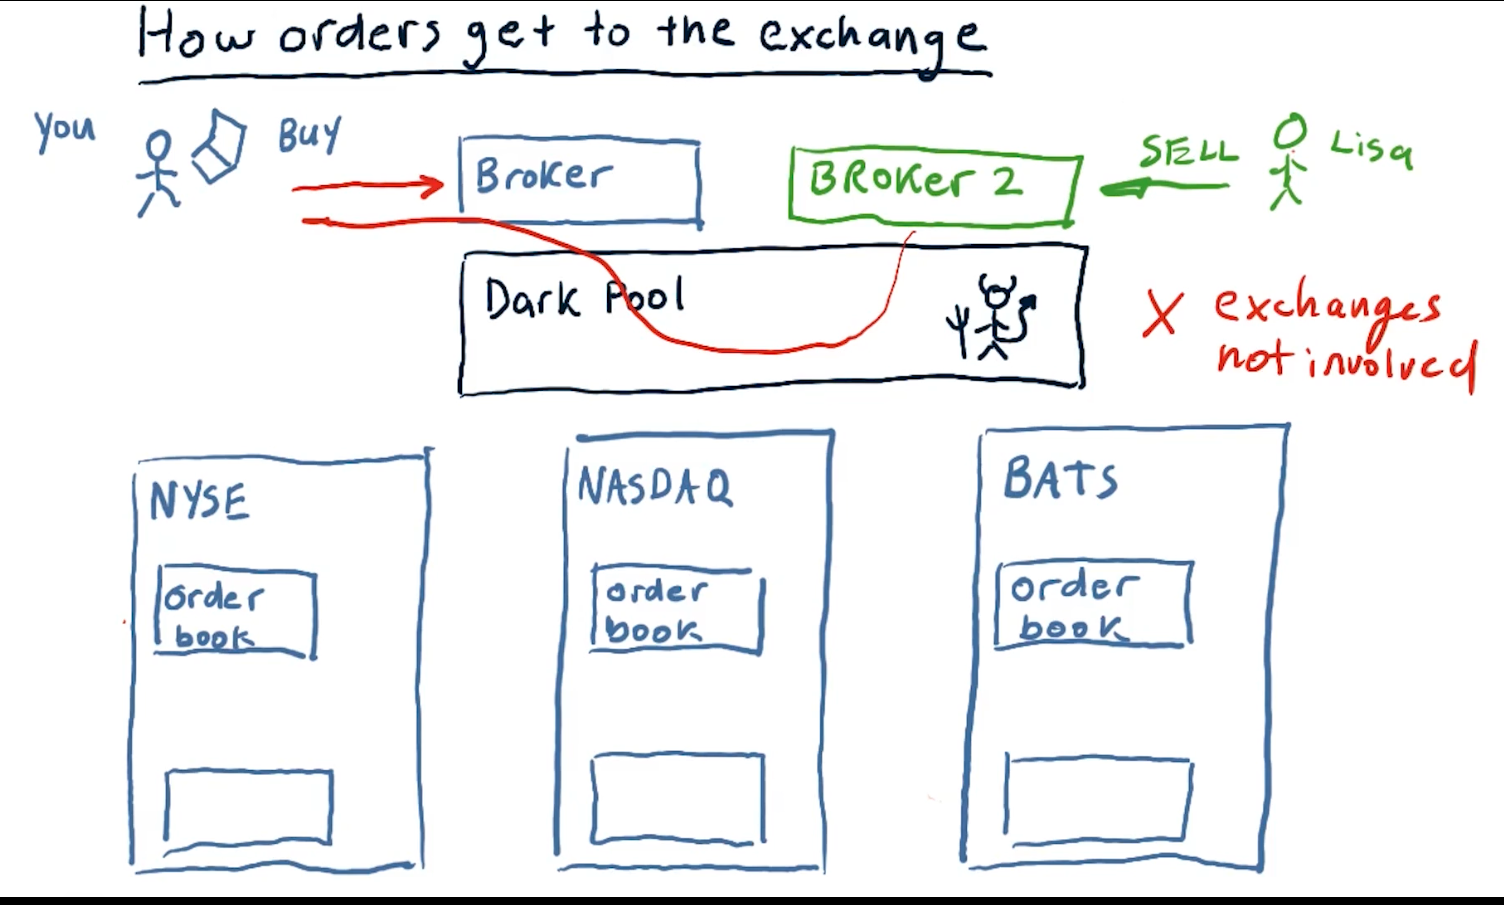 How orders get to the exchange
You
BUY
Broker
BROKer 2
SELL
Lisa
Dark Pool
X exchanges
not involved
NYSE
order
book
NASDAQ
order
book
BATS
order
book